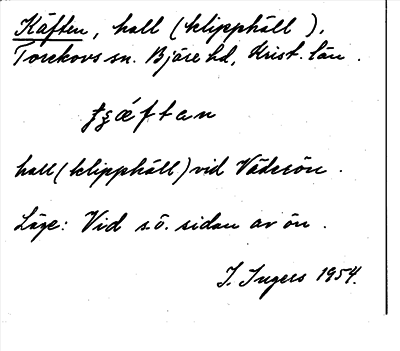 Käften, hall (klipphäll),
Torekovs sn. Bjäre hd, Krist. län.
hall (klipphäll) vid Väderön.
Läge: Vid s.ö. sidan av ön.
I. Ingers 1954.